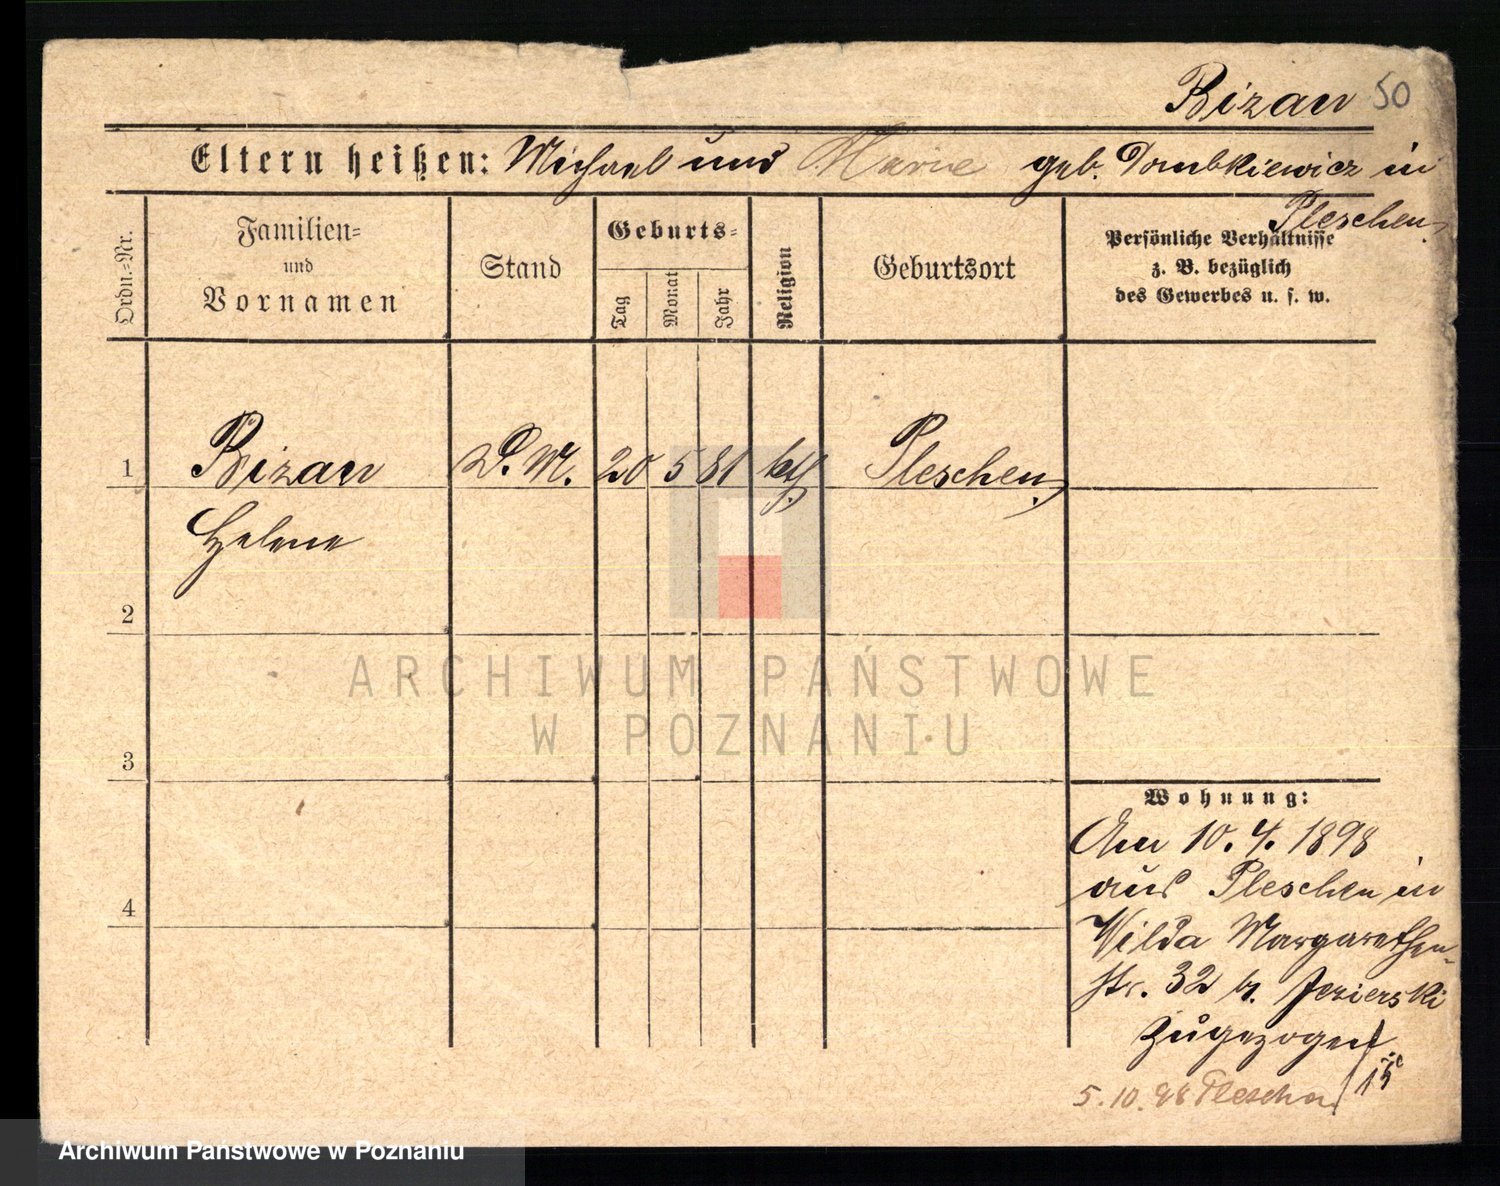 Bizan 50
Eltern heißen: Michael und Marie geb. Dombkiewicz in
Pleschen
Ordn.-Nr.
Familien-
und
Vornamen
Stand
Geburts-
Tag
Monat
Jahr
Religion
Geburtsort
Persönliche Verhältnisse
z. B. bezüglich
des Gewerbes u. s. w.
1 Bizan D. M. 20 5 81 kth. Pleschen
Helene
2
3
4
Wohnung:
Am 10. 4. 1898
aus Pleschen in
Wilda Margarethen-
str. 32 b. Jezierski
Zugezogen
15
5. 10. 98 Pleschen
ARCHIWUM PAŃSTWOWE
W POZNANIU
Archiwum Państwowe w Poznaniu